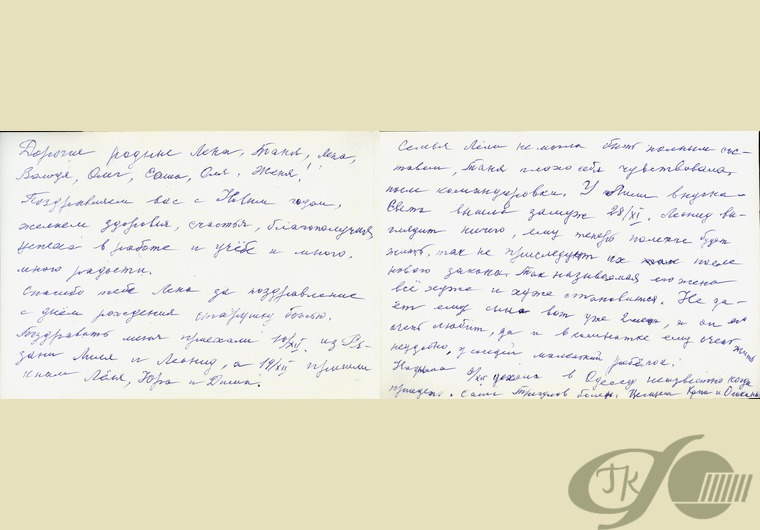 Дорогие родные Лена, Таня, Лена,
Володя, Олег, Саша, Оля, Женя!
Поздравляем вас с Новым годом,
желаем здоровья, счастья, благополучия,
успеха в работе и учёбе и много,
много радости.
Спасибо тебе Лена за поздравление
с днём рождения старушку больную.
Поздравить меня приехали 10/XII из Ря-
зани Лиля и Леонид, а 19/XII пришли
к нам Лёля, Юра и Дима.
Семья Лёли не могла быть полным сос-
тавом, Таня плохо себя чувствовала,
после командировки. У Лили внучка
Света вышла замуж 28/XI. Леонид вы-
глядит ничего, ему теперь полегче будет
жить, так не преследуют их после
нового закона. Так называемая его жена
всё хуже и хуже становится. Не да-
ёт ему сына вот уже 2 и он его
очень любит, да и в комнатке ему очень жить
неудобно, у соседей маленький ребёнок.
5/XII уехала в Одессу неизвестно когда
приедет. Саша болен. Целуем
ГК